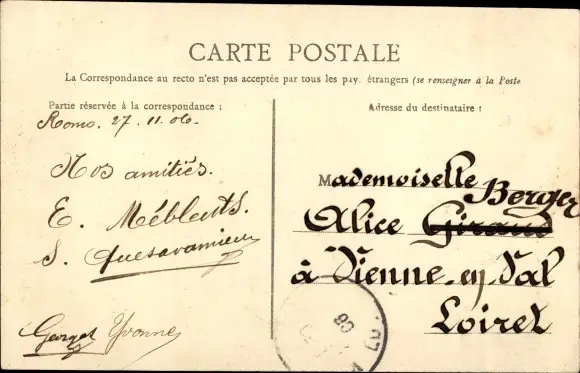 CARTE POSTALE
La Correspondance au recto n'est pas acceptée par tous les pay. étrangers (se renseigner à la Poste
Partie réservée à la correspondance :
27. 11. 06.
Nos amitiés.
E.
S.
Georges Yvonne
Adresse du destinataire :
Mademoiselle
Berger
Alice Giraud
à Vienne-en-Val
Loiret